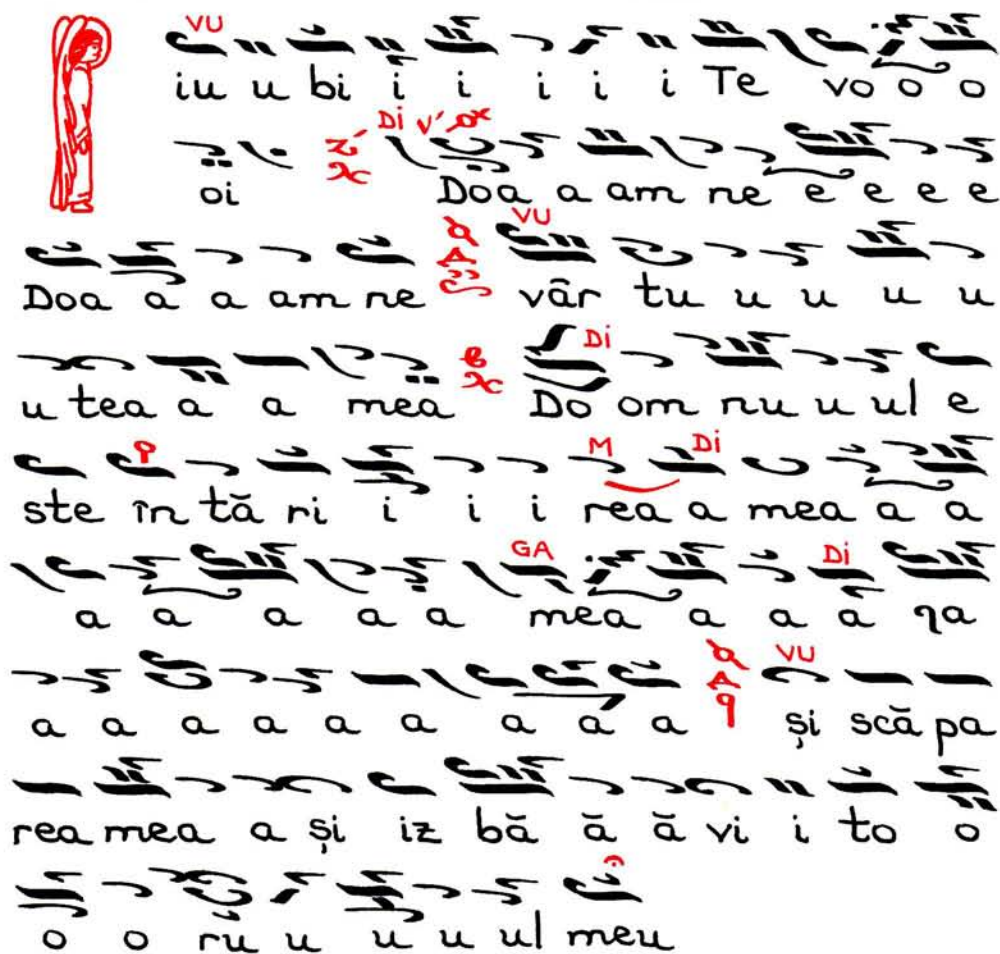 VU
iu u bi i i i i i Te vo o o
Di
oi Doa a am ne e e e e
VU
Doa a a am ne vâr tu u u u u
Di
u tea a a mea Do om nu u ul e
M Di
ste în tă ri i i i rea a mea a a
GA Di
a a a a a mea a a a ƞa
VU
a a a a a a a a a și scă pa
rea mea a și iz bă ă ă vi i to o
o o ru u u u ul meu